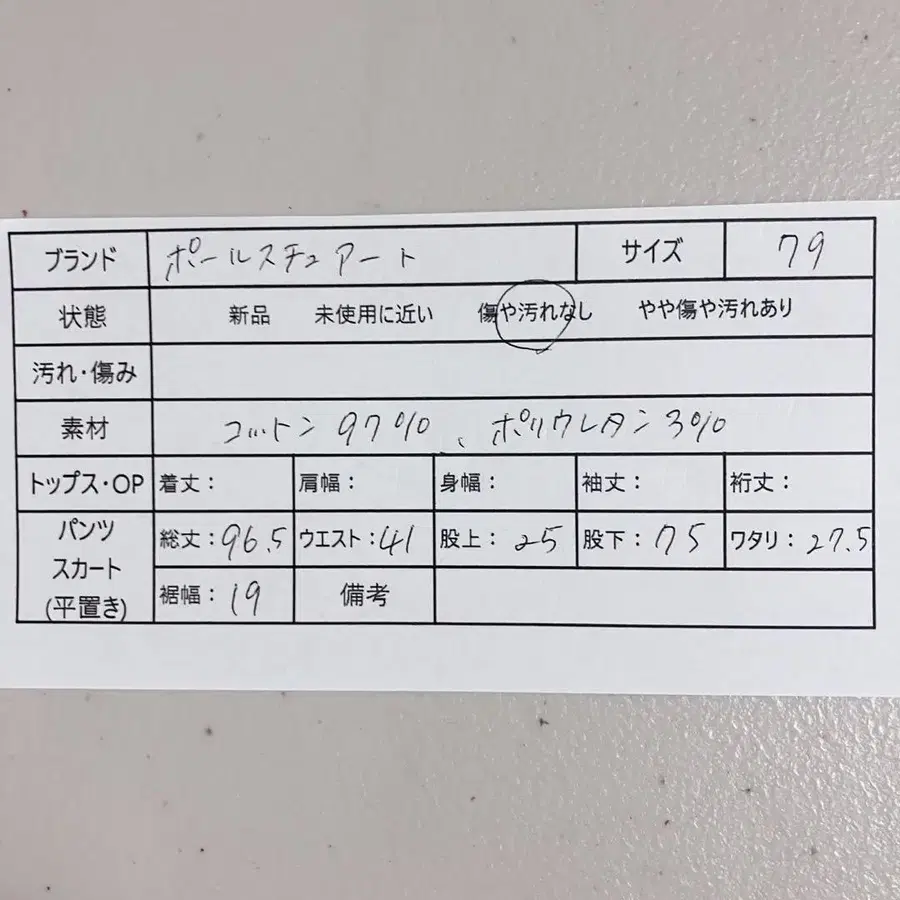 ブランド ポールスチュアート サイズ 79
状態 新品 未使用に近い 傷や汚れなし やや傷や汚れあり
汚れ・傷み
素材 コットン97%、ポリウレタン3%
トップス・OP 着丈: 肩幅: 身幅: 袖丈: 裄丈:
パンツ スカート (平置き) 総丈:96.5 ウエスト:41 股上:25 股下:75 ワタリ:27.5
裾幅:19 備考